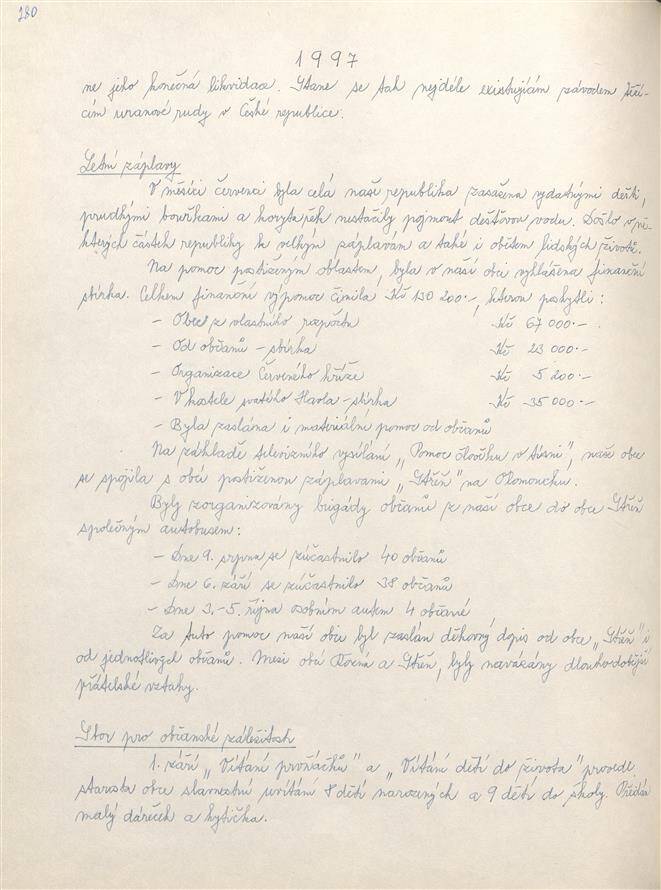 280
1997
ne jeho konečná likvidace. Stane se tak nejdéle existujícím závodem těží-
cím uranové rudy v České republice.
Letní záplavy
V měsíci červenci byla celá naše republika zasažena vydatnými dešti,
prudkými bouřkami a koryta řek nestačily pojmout dešťovou vodu. Došlo v ně-
kterých částech republiky k velkým záplavam a také i obětem lidských životů.
Na pomoc postiženým oblastem, byla v naší obci vyhlášena finanční
sbírka. Celkem finanční výpomoc činila Kč 130 200.-, kterou poskytli:
- Obec z vlastního rozpočtu Kč 67 000.-
- Od občanů - sbírka Kč 23 000.-
- Organizace Červeného kříže Kč 5 200.-
- V kostele svatého Havla - sbírka Kč 35 000.-
- Byla zaslána i materiální pomoc od občanů
Na základě televizního vysílání „Pomoc člověku v tísni", naše obec
se spojila s obcí postiženou záplavami „Střeň" na Olomoucku.
Byly zorganizovány brigády občanů z naší obce do obce Střeň
společným autobusem:
- Dne 9. srpna se zúčastnilo 40 občanů
- Dne 6. září se zúčastnilo 38 občanů
- Dne 3.-5. října osobním autem 4 občané
Za tuto pomoc naší obci byl zaslán děkovný dopis od obce „Střeň" i
od jednotlivých občanů. Mezi obcí Rožná a Střeň, byly navázány dlouhodobější
přátelské vztahy.
Sbor pro občanské záležitosti
1. září „Vítání prvňáčků" a „Vítání dětí do života" provedl
starosta obce slavnostní uvítání 8 dětí narozených a 9 dětí do školy. Předán
malý dáreček a kytička.